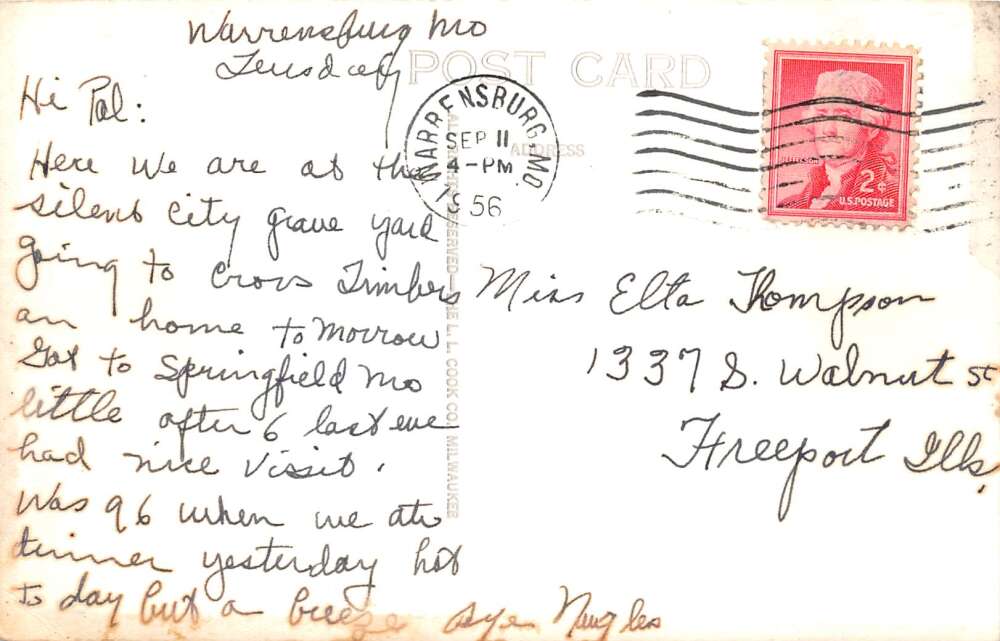 Warrensburg Mo
Teusday
POST CARD
Hi Pal:
WARRENSBURG, MO.
SEP 11
4-PM
1956
ADDRESS
JEFFERSON
2¢
U.S. POSTAGE
Here we are at the
silent city grave yard
going to Cross Timbers
an home to morrow
Got to Springfield Mo
little after 6 last eve
had nice vissit.
Was 96 when we ate
dinner yesterday hot
to day but a breeze aye Naugles
Miss Elta Thompson
1337 S. Walnut st
Freeport Ills,
ALL RIGHTS RESERVED—THE L. L. COOK CO., MILWAUKEE